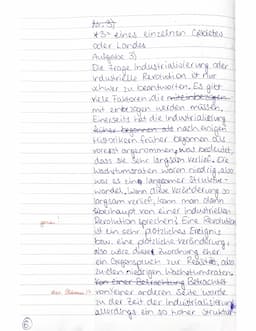 Nr. 3)
*3* eines einzelnen Gebietes
oder Landes
Aufgabe 3)
Die Frage Industrialisierung oder
industrielle Revolution ist nur
schwer zu beantworten. Es gibt
viele Faktoren die miteinbezogen
mit einbezogen werden müssen.
Einerseits hat die Industrialisierung
früher begonnen als nach einigen
Historikern früher begonnen als
vorerst angenommen, was bedeutet,
dass sie sehr langsam verlief. Die
Wachstumsraten waren niedrig, also
war es ein langsamer Struktur-
wandel. Wenn diese Veränderung so
langsam verlief, kann man dann
überhaupt von einer industriellen
Revolution sprechen? Eine Revolution
ist ein sehr plötzliches Ereignis
bzw. eine plötzliche Veränderung,
also wäre diese zuordnung eher
ein Gegenspruch zur Realität, also
zu den niedrigen Wachstumsraten.
Von einer Betrachtung Betrachtet
von einer anderen Seite wurde
zu der Zeit der Industrialisierung
allerdings ein so hoher Struktur-
6